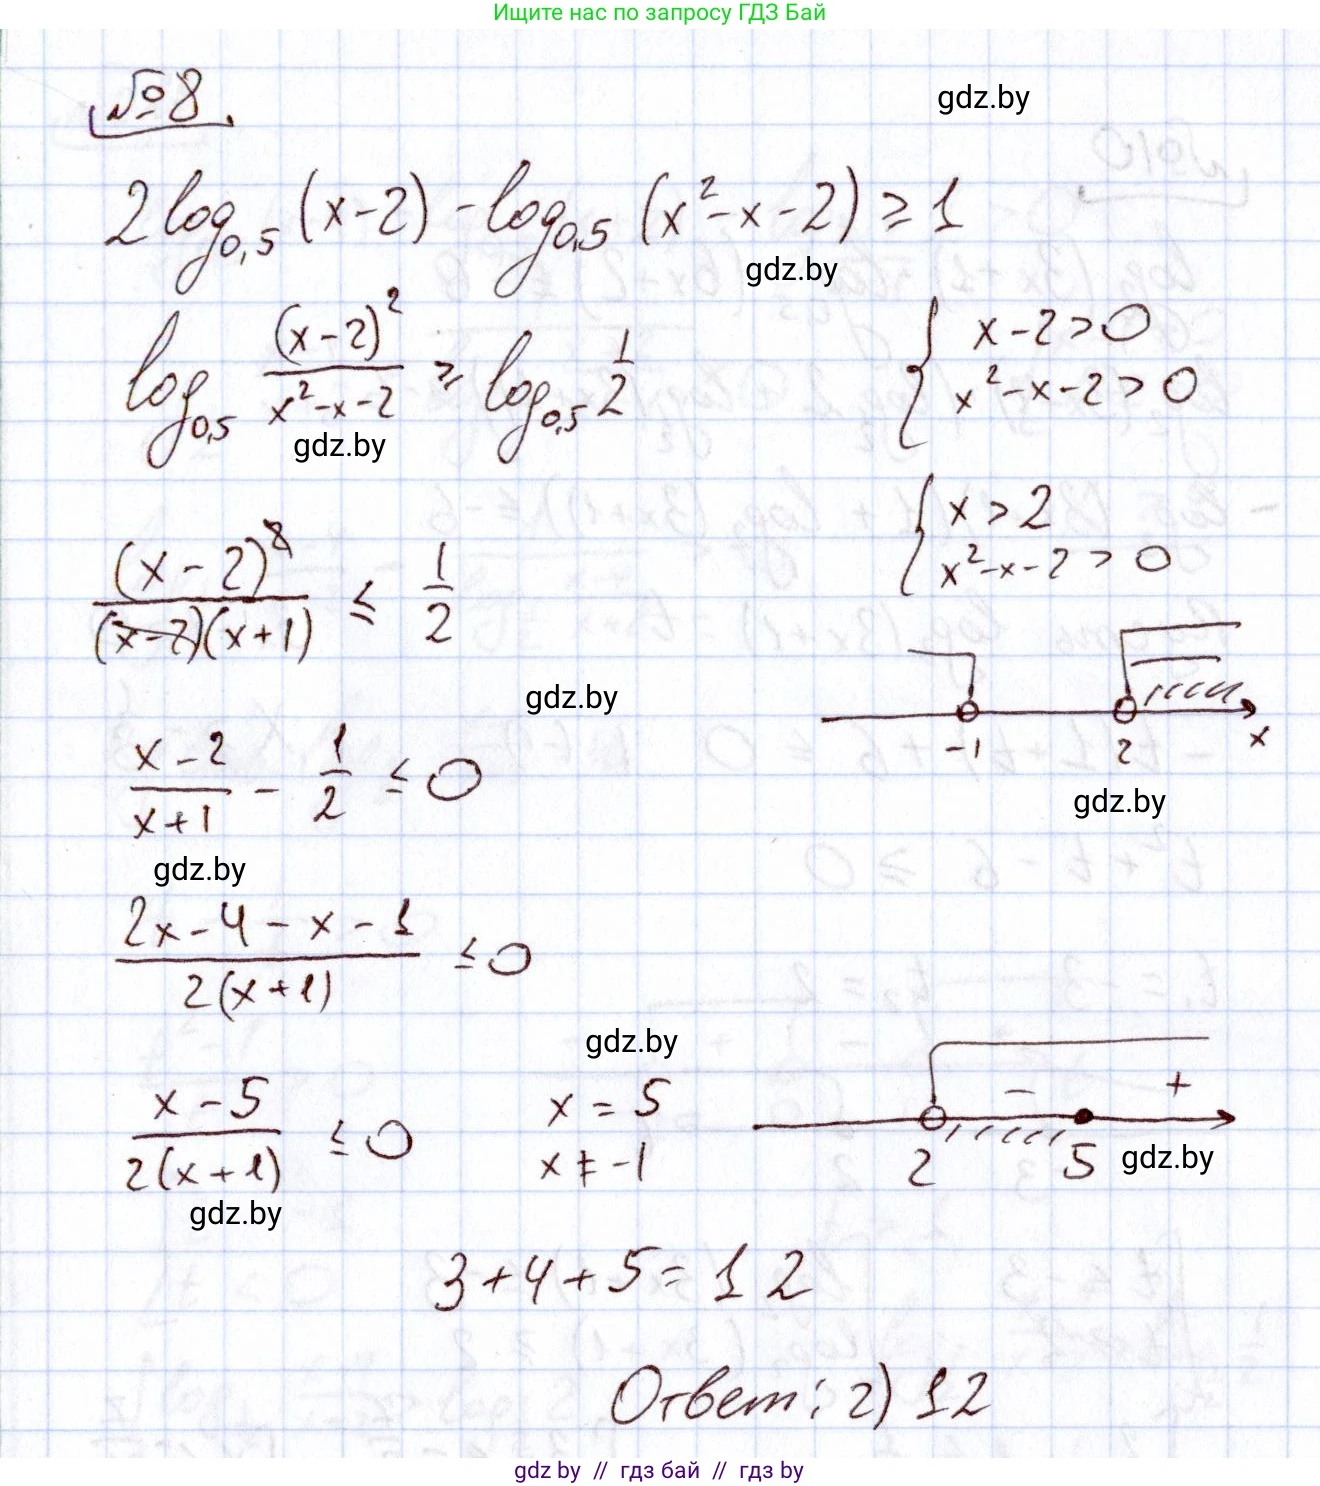 Ищите нас по запросу ГДЗ Бай
№8.
gdz.by
2log₀,₅ (x-2) - log₀,₅ (x² - x - 2) ≥ 1
gdz.by
log₀,₅ (x-2)²/(x²-x-2) ≥ log₀,₅ 1/2
{ x-2 > 0
x²-x-2 > 0
gdz.by
{ x > 2
x²-x-2 > 0
(x-2)²/((x-2)(x+1)) ≤ 1/2
gdz.by
-1 2 x
(x-2)/(x+1) - 1/2 ≤ 0
gdz.by
gdz.by
(2x-4-x-1)/(2(x+1)) ≤ 0
gdz.by
(x-5)/(2(x+1)) ≤ 0
x = 5
x ≠ -1
- +
2 5
gdz.by
gdz.by
3+4+5=12
Ответ: г) 12
gdz by // гдз бай // гдз by